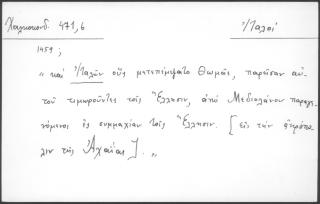 Χαλκοκονδ. 471,6. Ἰταλοί
1459 ;
" καὶ Ἰταλῶν οὓς μετεπέμψατο Θωμᾶς, παρῆσαν αὐ-
τοῦ τιμωροῦντες τοῖς Ἕλλησιν, ἀπὸ Μεδιολάνου παραγε-
νόμενοι ἐς συμμαχίαν τοῖς Ἕλλησιν. [εἰς τὴν ἀκρόπο-
λιν τῆς Ἀχαΐας]. "